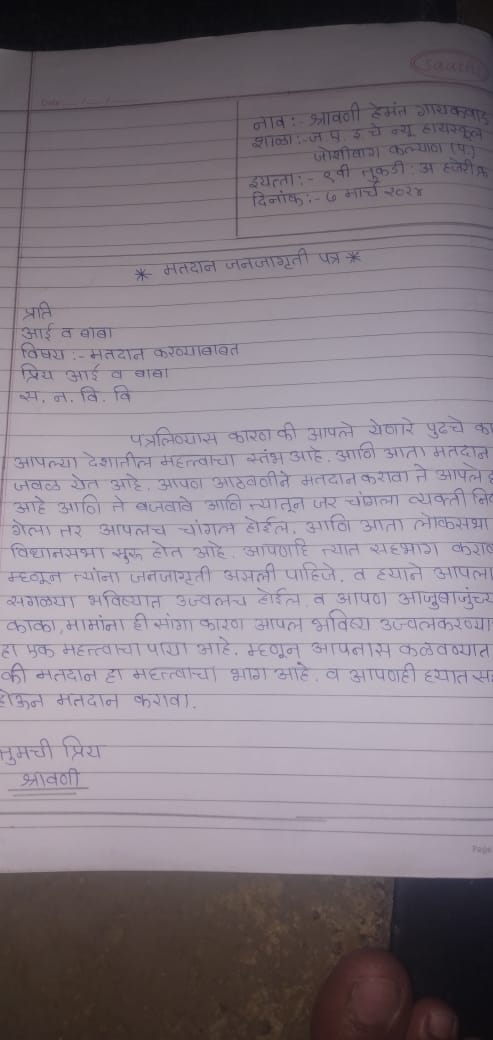 Saathi
Date
नाव:- श्रावणी हेमंत गायकवाड
शाळा:- ज. ए. इ चे न्यू हायस्कूल
जोशीबाग कल्याण (प.)
इयत्ता:- ९वी तुकडी: अ हजेरी क्र
दिनांक:- ७ मार्च २०२४
* मतदान जनजागृती पत्र *
प्रति
आई व बाबा
विषय:- मतदान करण्याबाबत
प्रिय आई व बाबा
स. न. वि. वि
पत्रलिण्यास कारण की आपले येणारे पुढचे
आपल्या देशातील महत्त्वाचा स्तंभ आहे. आणि आता मतदान
जवळ येत आहे. आपण आठवणीने मतदान करावा ते आपले
आहे आणि ते बजवावे आणि त्यातून जर चांगला व्यक्ती
गेला तर आपलच चांगल होईल. आणि आता लोकसभा
विधानसभा सुरू होत आहे. आपणहि त्यात सहभाग
म्हणून त्यांना जनजागृती असली पाहिजे. व हयाने आपला
सगळया भविष्यात उज्वलच होईल. व आपण आजुबाजुंच्य
काका, मामांना ही सांगा कारण आपल भविष्य उज्वलकरण्या
हा एक महत्त्वाचा पाया आहे. म्हणून आपनास कळवण्यात
की मतदान हा महत्त्वाचा भाग आहे. व आपणही हयात
होऊन मतदान करावा.
तुमची प्रिय
श्रावणी
Page